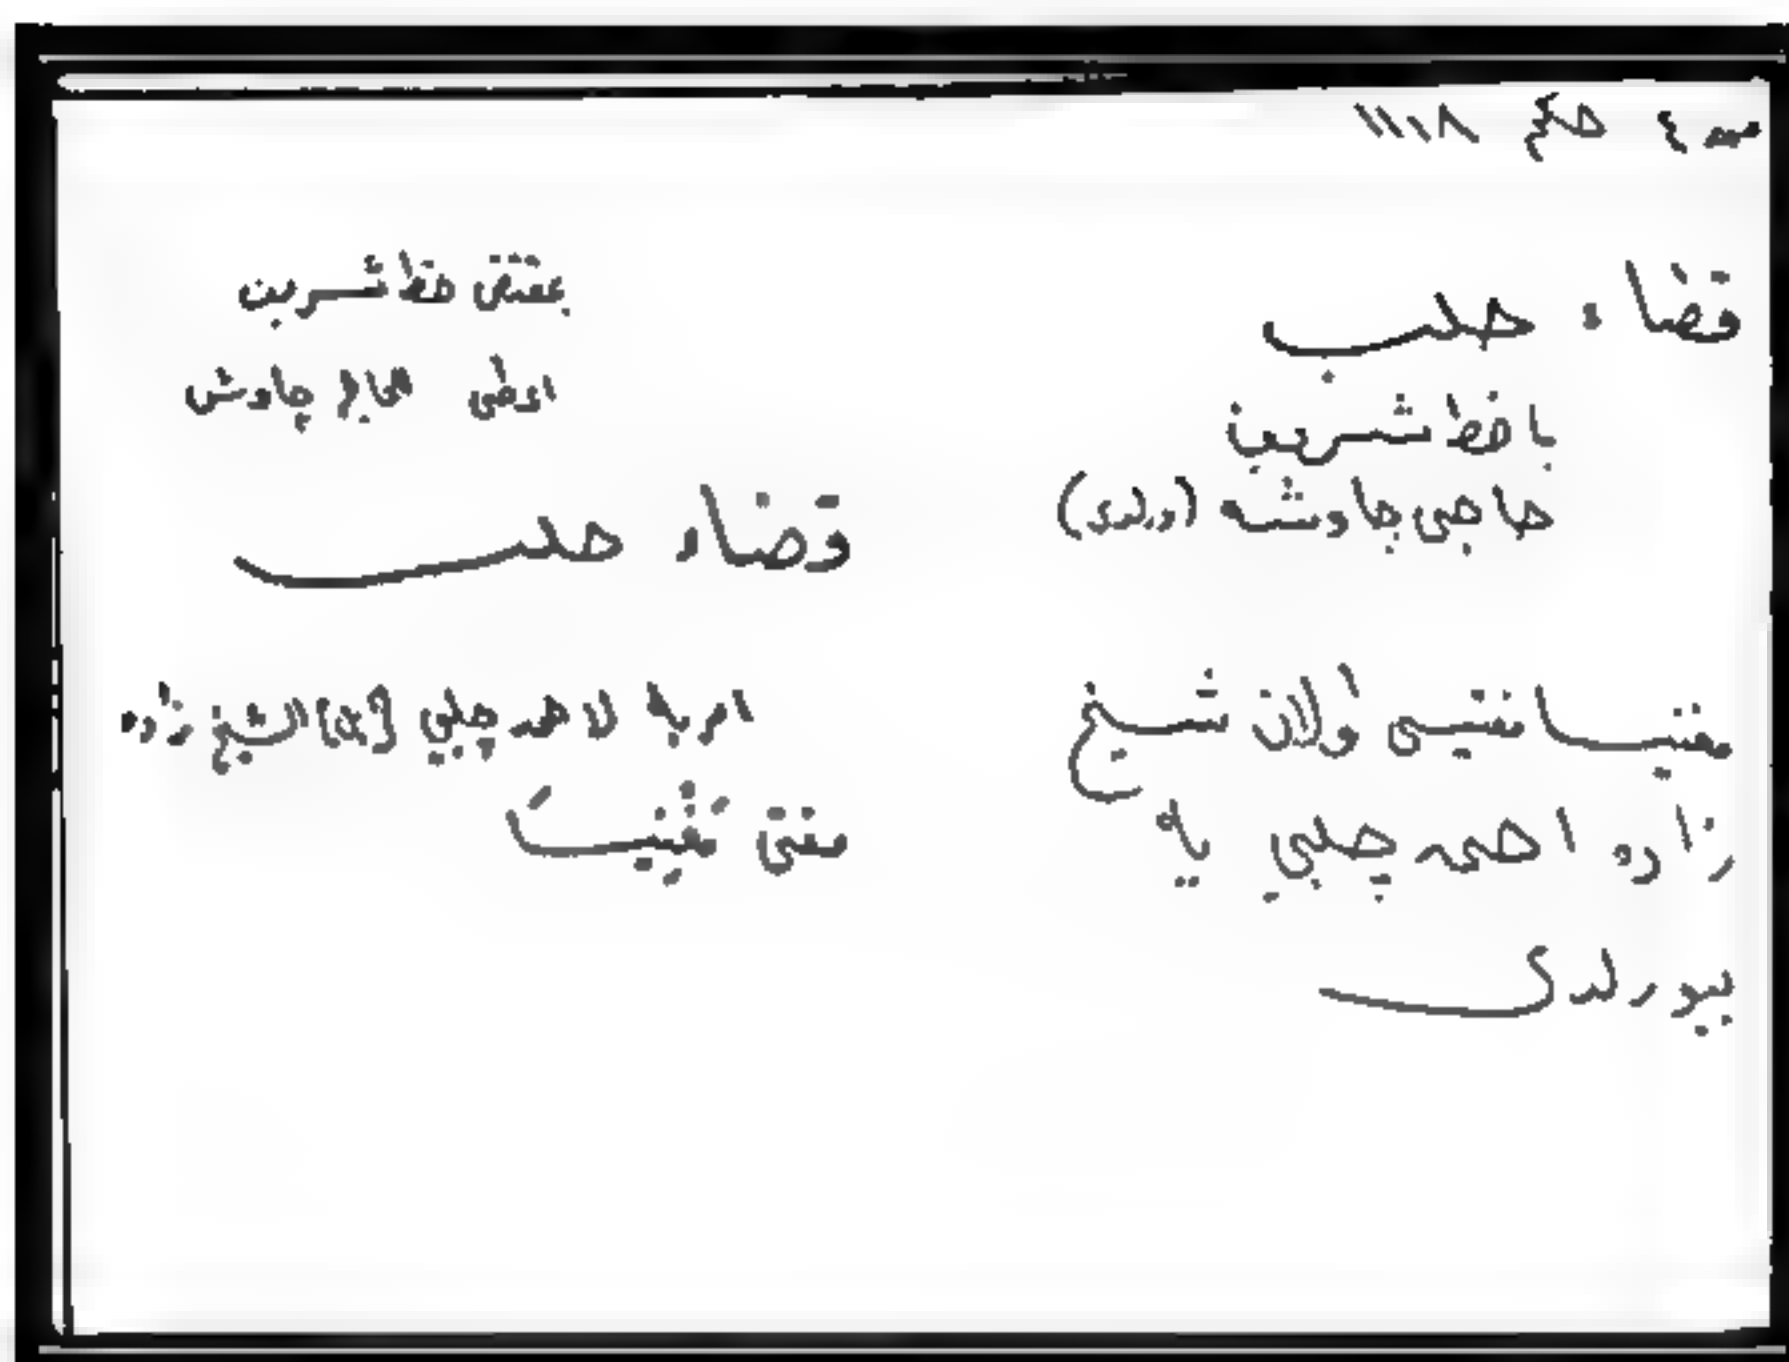 صـ ٤ حكم ١١١٨
قضاء حلب
باخط شريف
حاجى چاوشه (ورلدى)
مغنيسا مفتيسى اولان شيخ
زاده احمد چلبي يه
بيورلدى
بمقتضى خط شريف
اعطى للحاج چاوش
قضاء حلب
امر بها لاحمد چلبي الشيخ زاده
مفتى مَغْنِيسَا